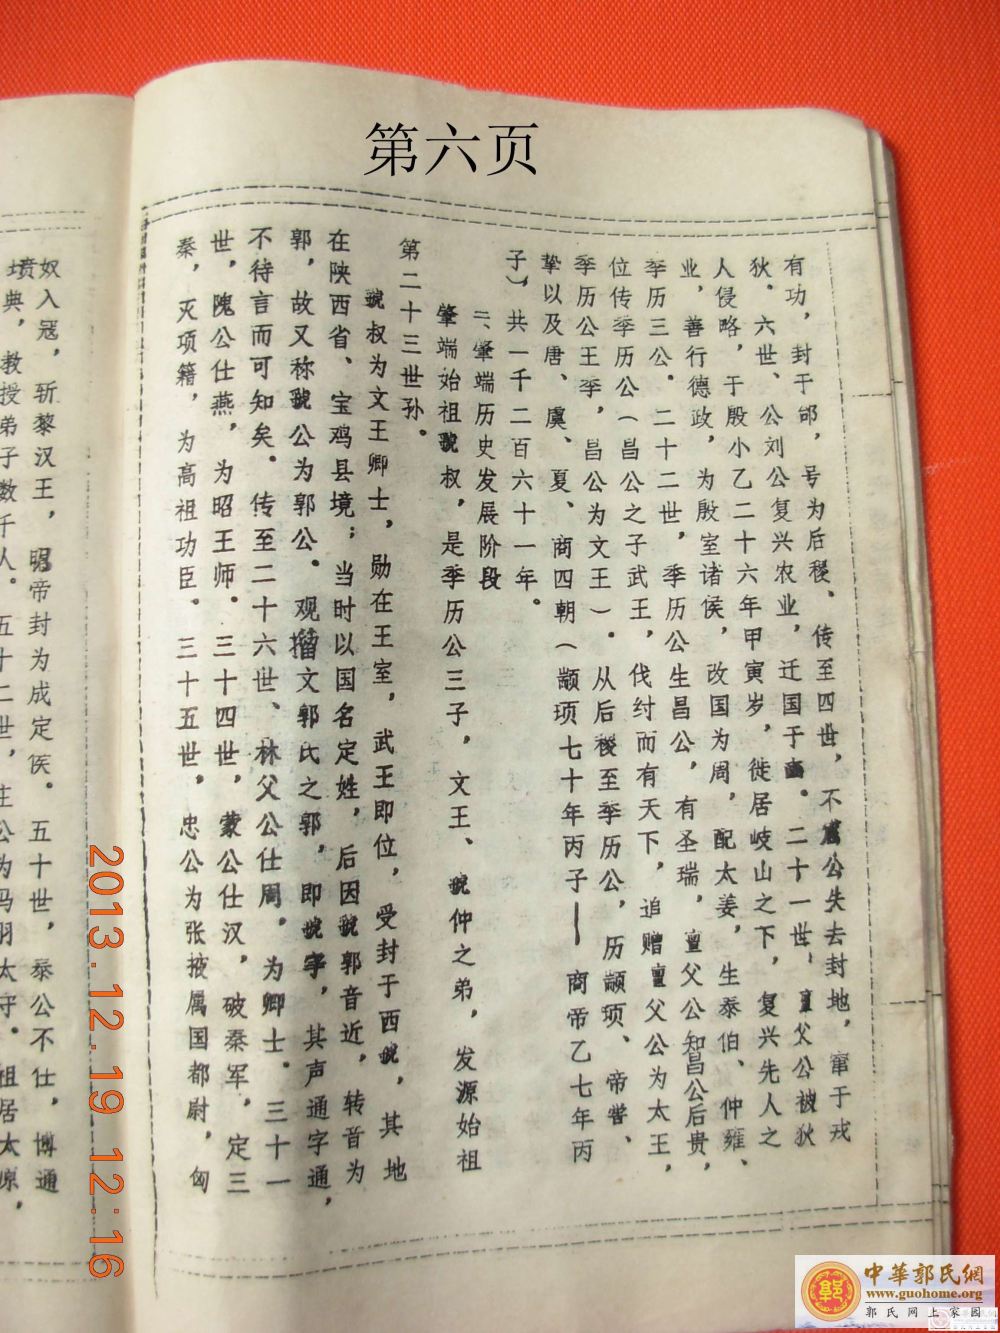 第六页
有功，封于邰，号为后稷、传至四世，不窋公失去封地，窜于戎
狄。六世、公刘公复兴农业，迁国于豳。二十一世、亶父公被狄
人侵略，于殷小乙二十六年甲寅岁，徙居岐山之下，复兴先人之
业，善行德政，为殷室诸侯，改国为周，配太姜，生泰伯、仲雍、
季历三公。二十二世，季历公生昌公，有圣瑞，亶父公知昌公后贵，
位传季历公（昌公之子武王，伐纣而有天下，追赠亶父公为太王，
季历公王季，昌公为文王）。从后稷至季历公，历颛顼、帝喾、
挚以及唐、虞、夏、商四朝（颛顼七十年丙子——商帝乙七年丙
子），共一千二百六十一年。
二、肇端历史发展阶段
肇端始祖虢叔，是季历公三子，文王、虢仲之弟，发源始祖
第二十三世孙。
虢叔为文王卿士，勋在王室，武王即位，受封于西虢，其地
在陕西省、宝鸡县境；当时以国名定姓，后因虢郭音近，转音为
郭，故又称虢公为郭公。观籀文郭氏之郭，即虢字，其声通字通，
不待言而可知矣。传至二十六世、林父公仕周，为卿士。三十一
世，隗公仕燕，为昭王师。三十四世，蒙公仕汉，破秦军，定三
秦，灭项籍，为高祖功臣。三十五世，忠公为张掖属国都尉，匈
奴入寇，斩黎汉王，昭帝封为成定侯。五十世，泰公不仕，博通
坟典，教授弟子数千人。五十二世，庄公为冯翊太守。祖居太原，
2013.12.19 12:16
郭
中華郭氏網
www.guohome.org
郭氏网上家园